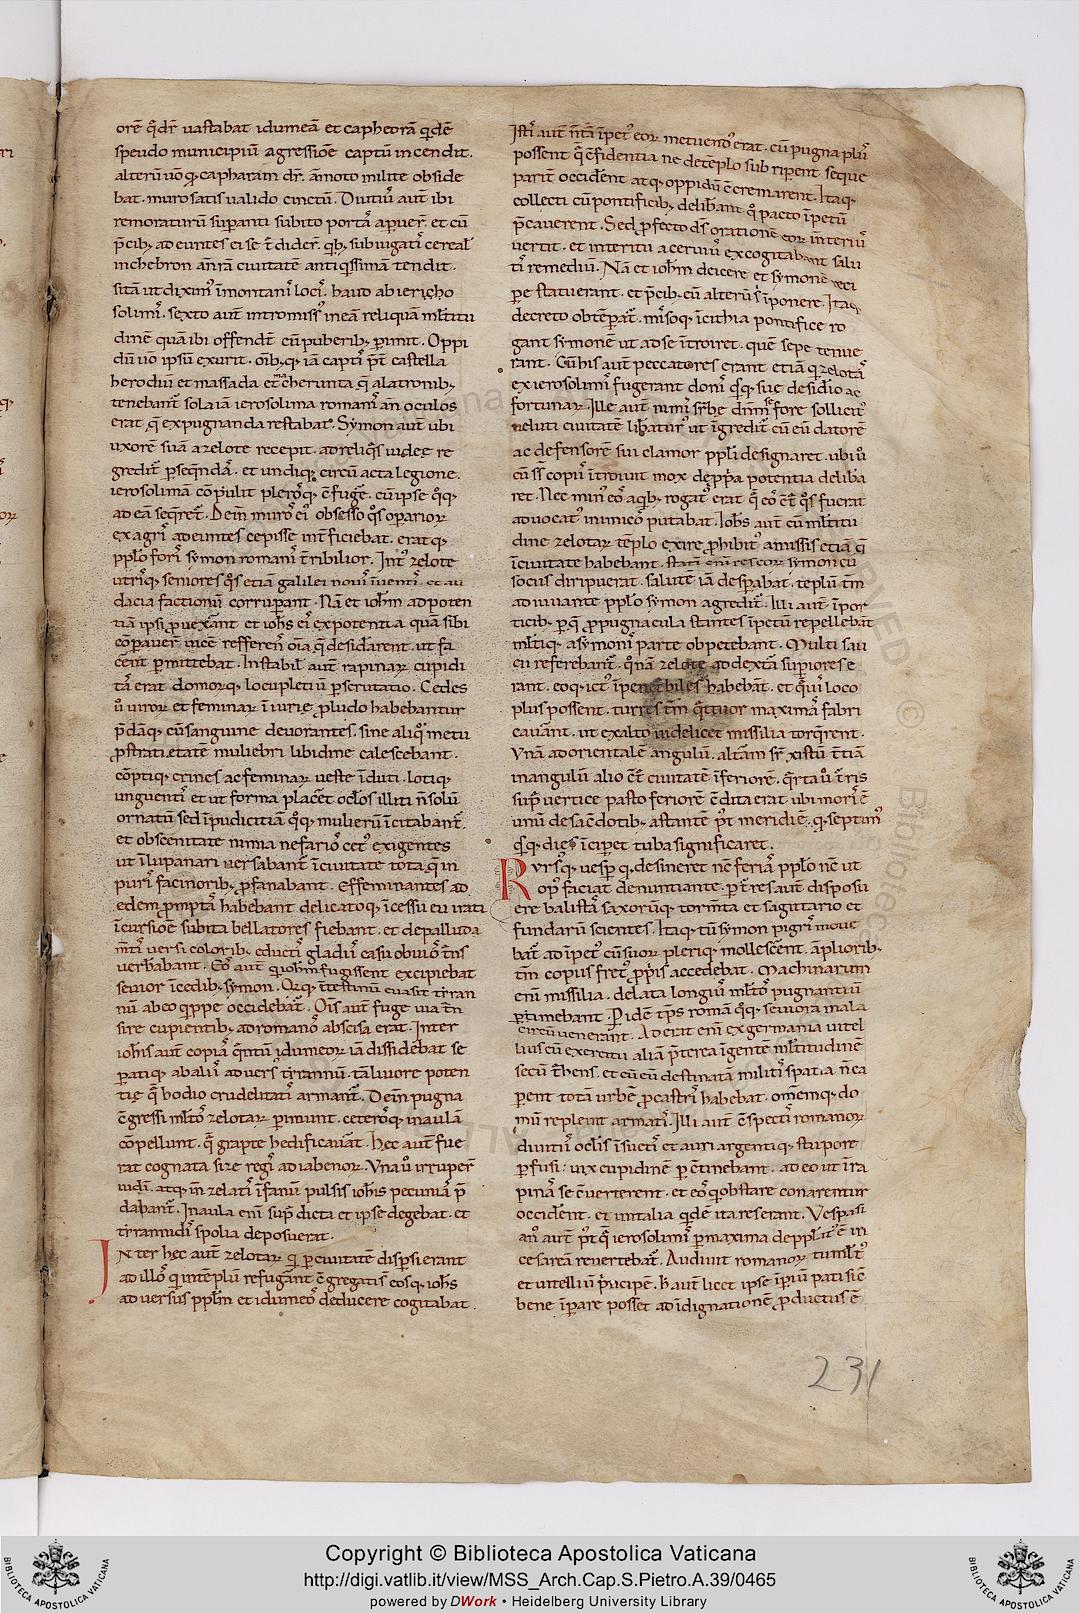 orē q̄ dr̄ uastabat idumeā et caphetrā quidē
speudo municipiū agressiōe captū incendit.
alterū u̅o q; capharam dr̄. āmoto milite obside
bat. muro satis ualido cinctū. Diutiu᾽ aut̄ ibi
remoraturū sup̄anti subito portā aperuer̄. et cū
p̄cib; ad euntes ei se t̄dider̄. qb; subiugati᾽ cereal᾽
inchebron an̄rā ciuitatē antiqissimā tendit.
sitā ut diximᷤ ī montani᾽ loci᾽. haud ab iericho
solimi᾽. sexto aut̄ intromissᷤ in eā reliquā ml̄titu
dinē quā ibi offendit̄ cū puberib; p̱imit. Oppi
dū u̅o ipsū exurit. oīb; q; iā capti᾽ p̄t̄ castella
herodiū et massada et macherunta q̄ a latronib;
tenebant᾽ sola iā ierosolima romani᾽ an̄ oculos
erat q̄ expugnanda restabat. Symon aut̄ ubi
uxorē suā a zelote recepit. ad reliqᷤs iudeę re
gredit᾽ p̱seqendā. et undiq; circū acta legione.
ierosolimā cōpulit plerosq; cōfugē. cū ipse qq;
ad eā seqret᾽. Dem̄ muro᾽ ei᾽ obsesso qᷤs operarioꝝ
ex agri᾽ ad euntes cepisse int̄ficiebat. erat q;
pplo fori᾽ symon romani᾽ t̄ribilior. Int᾽ zelote
utriq; seniores qᷤs etiā galilei noui᾽ inuenti᾽ et au
dacia factionū corrup̱ant. Nā et ioh̄m ad poten
tiā ipsi puexānt et ioh̄s ei᾽ ex potentia quā sibi
cōp̱auer᾽ uicē refferen᾽ oīa q̄ desidarent. ut fa
cerent p̱mittebat. Instabil᾽ aut̄ rapinaꝝ cupidi
tā erat domorq; locupletiū p̱scrutatio. Cedes
u̅ uiroꝝ et feminaꝝ iniurię p ludo habebantur
p̄dāq; cū sanguine deuorantes. sine aliqᷤ metu
p strati etatē muliebri libidine calescebant.
cōptiq; crines ac feminaꝝ ueste induti. lotiq;
unguenti᾽ et ut forma placeret oclos illiti n̄ solū
ornatū sed īpudicitiā qq; mulierū īcitabant᾽.
et obscenitate nimia nefario᾽ cet᾽ exigentes
ut ī lupanari uersabant᾽ ī ciuitate tota. q̄ in
puri᾽ facinorib; p̱fanabant. Effeminantes ad
edem prōptā habebant delicatoq; icessu eu irati
ī cursiōe subita bellatores fiebant. et de palluda
m̄ti᾽ uersi colorib; educti᾽ gladiu᾽ casu obuio᾽ trās
uerb̄abant. Eo᾽ aut̄ qi ioh̄m fugissent excipiebat
seuior ī cedib; symon. Qisq; intestinū euasit tirran
nū ab eo qippe occidebat᾽. Ois aut̄ fuge uia trā
sire cupientib; ad romano᾽ abscisa erat. Inter
ioh̄is aut̄ copiā qntū idumeoꝝ iā dissidebat se
p̱atiq; ab alii᾽ aduersᷤ tirrannū. tā liuore poten
tię q̄ hodio crudelitati᾽ armant᾽. Deīn pugna
cōgressi ml̄to᾽ zelotaꝝ p̱imunt. ceteroq; in aulā
cōpellunt. q̄ grapte hedificauāt. hec aut̄ fue
rat cognata sizę regi᾽ adiabenoꝝ. Una u̅ irruper᾽
iudī. atq; īn zelati᾽ ī fanū pulsis ioh̄is pecuniā p̄
dabant᾽. In aula eni̅ sup̄ dicta et ipse degebat. et
tirannidi᾽ spolia deposuerat.
Inter hec aut̄ zelotaꝝ qi p̱ ciuitatē disp̱si erant
ad illo᾽ qi in tēplū refugānt cōgregatis eosq; ioh̄s
aduersus ppl̄m et idumeo᾽ deducere cogitabat.
Isti᾽ aut̄ n̄ tā īpet᾽ eoꝝ metuendᷤ erat. cū pugna plu᾽
possent q̄ cōfidentia ne de tēplo sub ripent seque
pariṫ occiderent atq; oppidū cōcremarent. Itaq;
collecti cū pontificib; delib̄ant qᷤ pacto īpetū
p̄cauerent. Sed pfecto d̄s orationē eoꝝ in teriu᾽
uertit. et interitu aceruiu᾽ excogitabant salu
ti᾽ remediū. Nā et ioh̄m deicere et symonē reci
pe statuerant. et p̄cib; cū alterū sᷤ īponere. Itaq;
decreto obtēp̱at. missoq; īcithia pontifice ro
gant symonē ut ad se ītroiret. quē sepe tenue
rant. Cū his aut̄ peccatores erant etiā qi zelota᾽
ex ierosolimi᾽ fugerant domi᾽ qisq; sue desidio ac
fortunaꝝ. Ille aut̄ nimi᾽ sr̄be dn̄m se fore sollicitᷤ
ueluti ciuitatē libatur᾽ ut īgredit᾽ cū eū datorē
ac defensorē sui clamor ppli designaret. ubi u̅
cū sᷤs copiu᾽ ītroiuit mox de p̱pria potentia deliba
ret. Nec minᷤ eo᾽ aqb; rogat᾽ erat q̄ eo᾽ cōt̄ qᷤs fuerat
aduocatᷤ inimico᾽ putabat. Ioh̄s aut̄ cū ml̄titu
dine zelotaꝝ tēplo exire phibitᷤ amissis etiā q̄
ī ciuitate habebant. statim eni̅ res eoꝝ symon cū
sociis diripuerat. salutē iā desp̱abat. tēplū t̄m
adiuuante pplo symon agredit᾽. Illi aut̄ ī por
ticib; p̱q; ppugnacula stantes īpetū repellebāt
ml̄tiq; a symoni᾽ parte obpetebant. Multi sau
cii referebant᾽. qnā zelotę ad dextā sup̱iores e
rant. eoq; ictᷤ īpenetbiles habebāt. et qui loco
plus possent. turres t̄m quattuor maxima᾽ fabri
cauānt. ut ex alto uidelicet missilia torqerent.
Unā ad orientalē angulū. altām sr̄ xistū t̄tiā
in angulū alio cōt̄ ciuitatē īferiorē. qrta u̅ t̄ris
sup̄ uertice pastoferiorē cōdita erat. ubi mori᾽ ē
unū de sacēdotib; astantē p̄t meridiē q; septimᷤ
qisq; dies īciperet tuba significaret.
Rursusq; uesp̱ q; desineret nē feriā pplo nē ut
opᷤ faciat denuntiante. p̱ t̄res aut̄ disposu
ere balistā saxorūq; torm̄ta et sagitario et
fundarū scientes. Itaq; tū symon pigri᾽ moue
bat᾽ ad īpetᷤ cū suoꝝ pleriq; mollescerent. āpliorib;
t̄m copiis fret᾽ ppis accedebat. Machinarum
eni̅ missilia. delata longiu᾽ ml̄to᾽ pugnantiū
p̱timebant. Pidē tps̄ romā qq; seuiora mala
circūuenerant. Aderat eni̅ ex germania uitel
lius cū exercitu aliā p̄terea īgentē ml̄titudinē
secū t̄hens. et cū eū destinatā militi᾽ spat̄a n̄ ca
p̱ent totā urbē p castri᾽ habebat. omēmq; do
mū repleuit armati᾽. Illi aut̄ īspecti᾽ romanoꝝ
diuitiu᾽ oclis īsueti᾽ et auri argentiq; stupore
p̱fusi. uix cupidinē p̱ cōtinebant. ad eo ut ī ra
pinā se cōuerterent. et eo᾽ q; obstare conarentur
occiderent. et in italia qidē ita res erant. Vespasi
anᷤ aut̄ p̄t q̄ ierosolimi᾽ p̱ maxima de ppl̄atᷤ ē in
cesareā reuertebat᾽. Audiunt romanoꝝ tumultᷤ
et uitelliū p̄ncipē. h̄ aut̄ licet ipse īpiū pati siē
bene īp̱are posset ad īdignationē pductus ē
231
Copyright © Biblioteca Apostolica Vaticana
http://digi.vatlib.it/view/MSS_Arch.Cap.S.Pietro.A.39/0465
powered by DWork • Heidelberg University Library
BIBLIOTECA APOSTOLICA VATICANA
BIBLIOTECA APOSTOLICA VATICANA